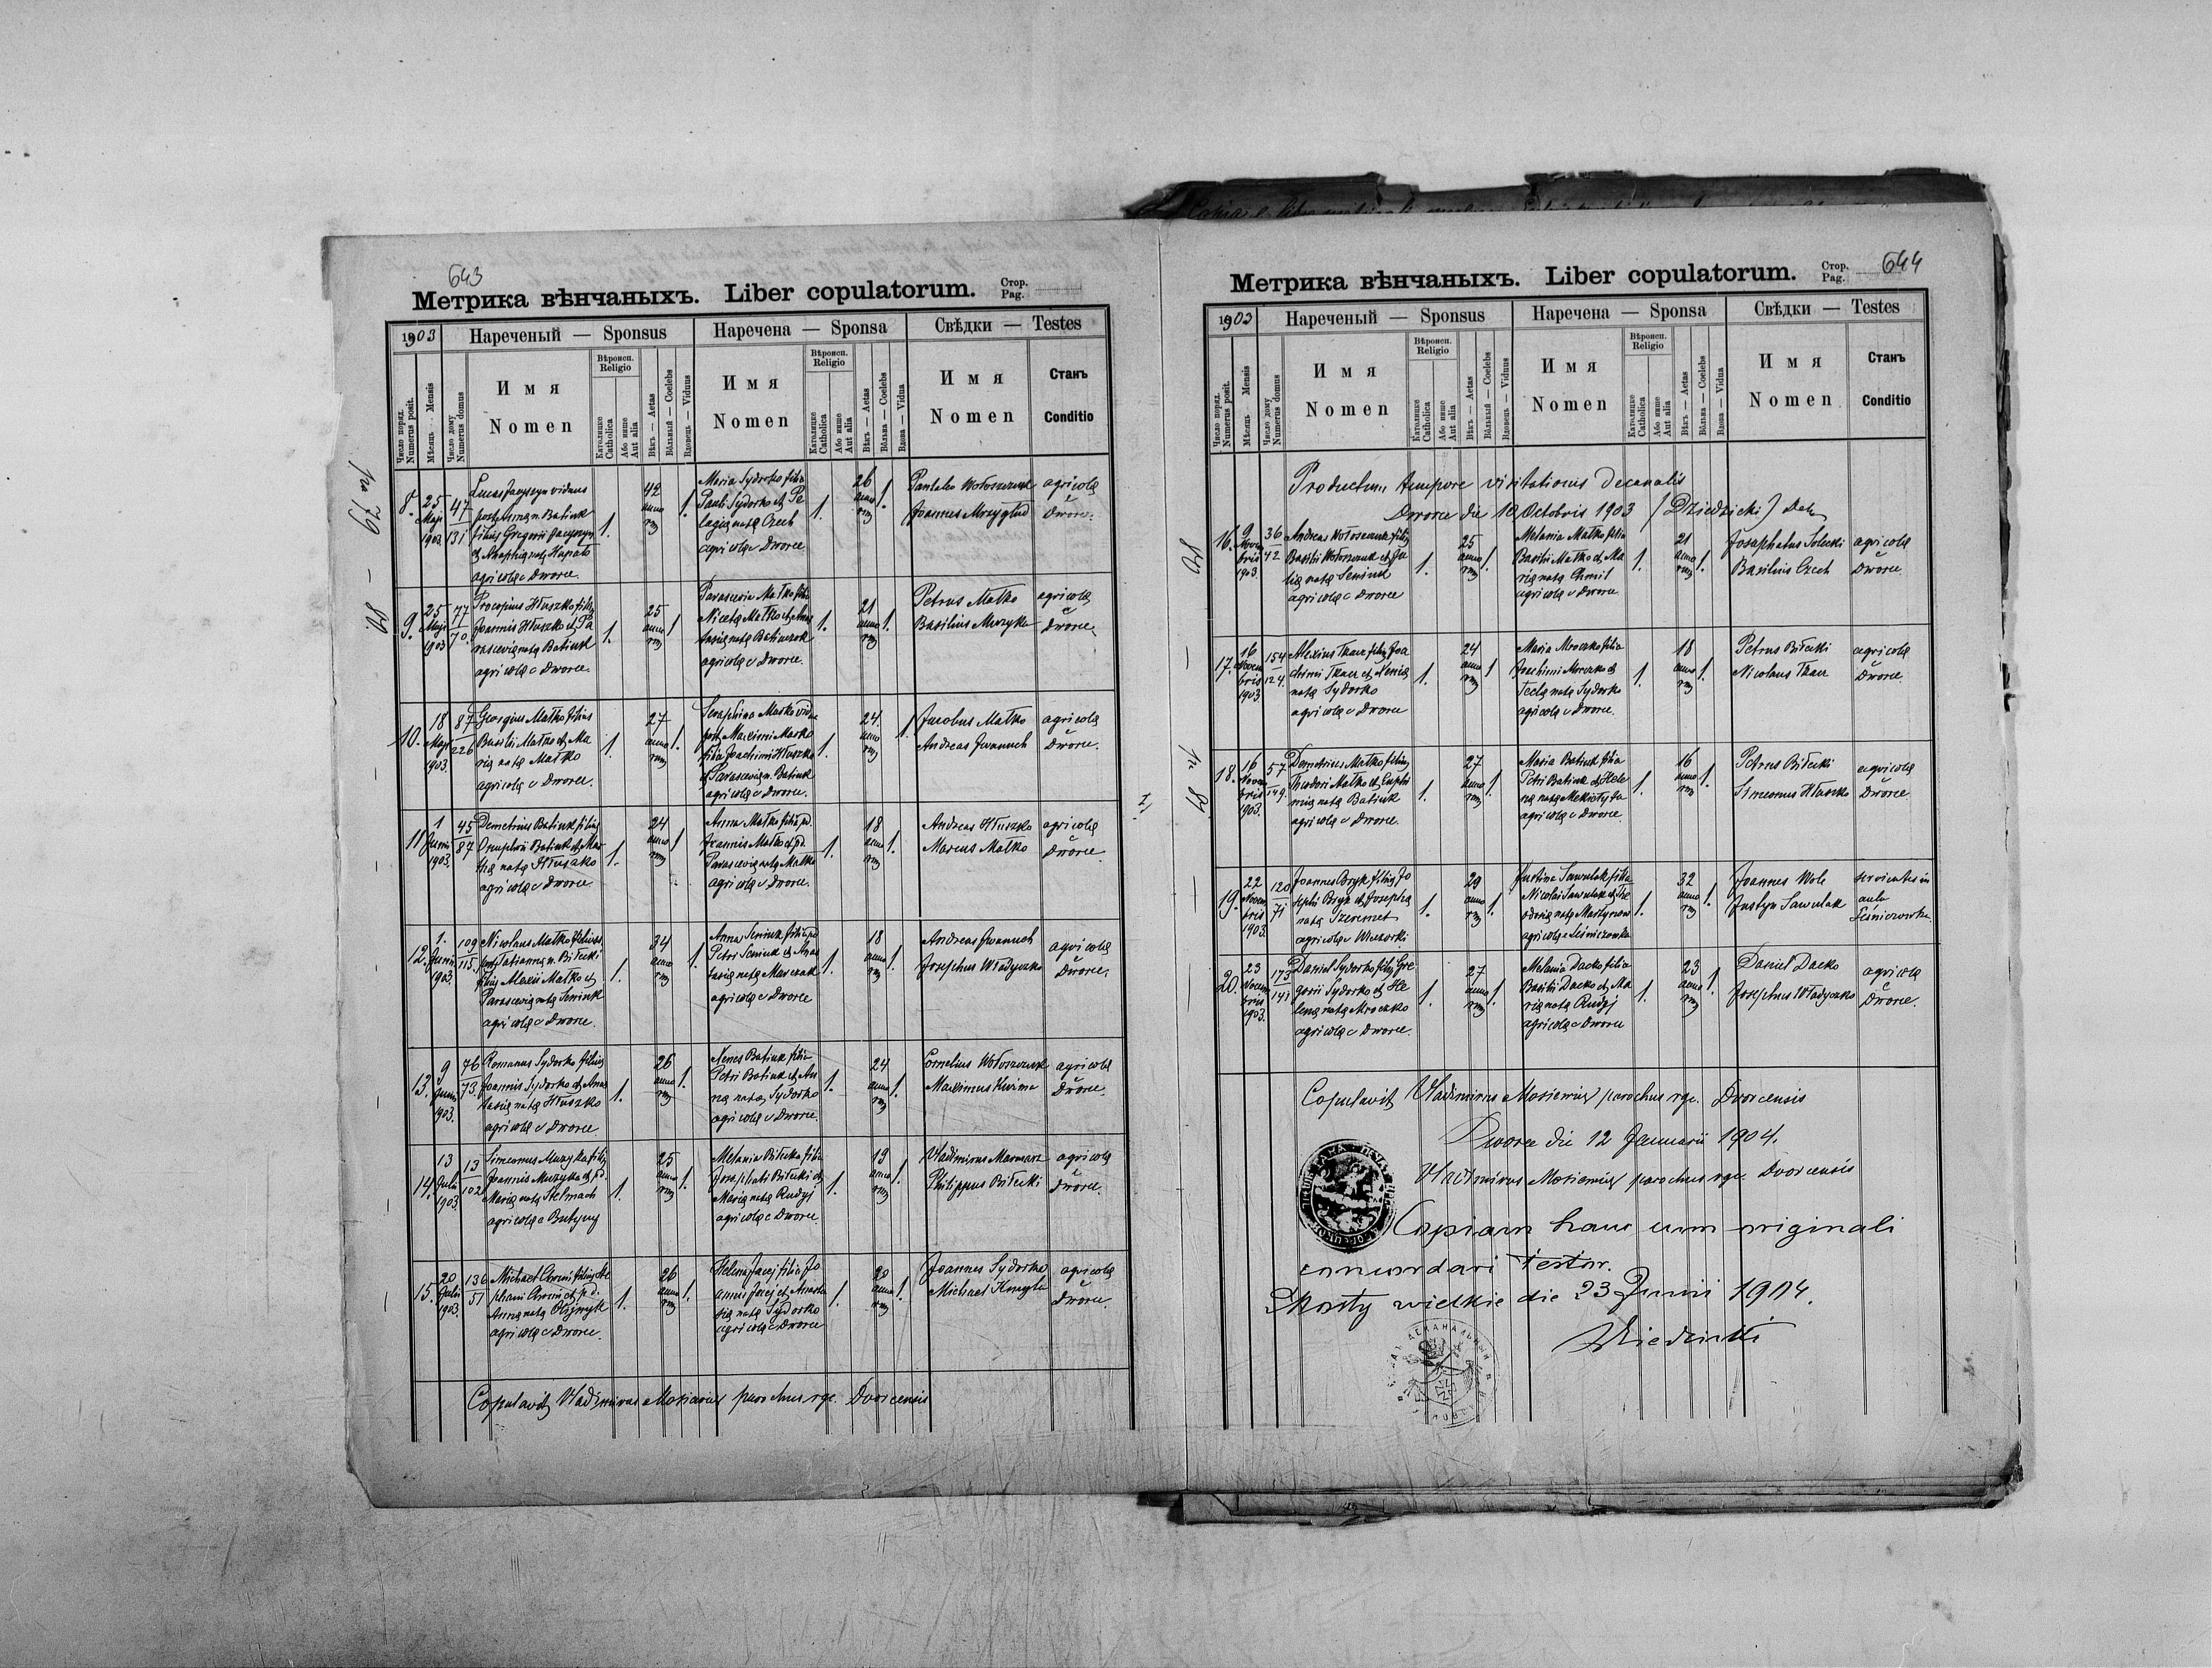 643
Метрика вѣнчаныхъ. Liber copulatorum.
Стор.
Pag.
1903
Нареченый — Sponsus
Наречена — Sponsa
Свѣдки — Testes
Число поряд.
Numerus posit.
Мѣсяць Mensis
Число дому
Numerus domus
Имя
Nomen
Вѣроисп.
Religio
Католицке
Catholica
Або инше
Aut alia
Вѣкъ — Aetas
Вôльный — Coelebs
Вдовець — Viduus
Имя
Nomen
Вѣроисп.
Religio
Католицке
Catholica
Або инше
Aut alia
Вѣкъ — Aetas
Вôльна — Coelebs
Вдова — Vidua
Имя
Nomen
Станъ
Conditio
8.
25
Maji
1903.
47
131
viduus
post Anna n. Batiuk
filius Gregorii
agricola e Dworce.
1.
42
anno
rum
1.
Maria Sydorko filia
Pauli Sydorko et Pe
lagia nata Czech
agricola e Dworce
1.
26
anno
rum
1.
Pantaleo Wołoszczuk
Joannes Mrzygłud
agricola
e
Dworce.
9.
25
Maji
1903
77
70.
Procopius Hłuszko filius
Joannis Hłuszko et Pa
rascevia nata Batiuk
agricola e Dworce.
1.
25
anno
rum
1
Parascevia Matko filia
Niceta Matko et Anas
tasia nata
agricola e Dworce.
1.
21
anno
rum
1.
Petrus Matko
Basilius Muzyka
agricola
e
Dworce.
10.
18
Maji
1903.
87
226
Georgius Matko filius
Basilii Matko et Ma
ria nata Matko
agricola e Dworce.
1.
27
anno
rum
1.
Seraphina Masko vidua
post Maximi Masko
filia Joachimi Hłuszko
et Parascevia n. Batiuk
agricola e Dworce.
1.
24.
anno
rum
1.
Jacobus Matko
Andreas Iwanuch
agricola
e
Dworce.
11
1
Junii
1903.
45
87
Demetrius Batiuk filius
Onuphrii Batiuk et Mar
tha nata Hłuszko
agricola e Dworce.
1.
24
anno
rum
1
Anna Matko filia p.d.
Joannis Matko et p.d.
Parascevia nata Matko
agricola e Dworce.
1.
18
anno
rum
1.
Andreas Hłuszko
Marcus Matko
agricola
e
Dworce
12.
1.
Junii
1903.
109
115.
Nicolaus Matko viduus
post Tatianna n. Biłecki
filius Alexii Matko et
Parascevia nata Seniuk
agricola e Dworce.
1.
34
anno
rum
1.
Anna Seniuk filia p.d.
Petri Seniuk et Anas
tasia nata Marczak
agricola e Dworce
1.
18
anno
rum
1.
Andreas Iwanuch
Josephus Władyczko
agricola
e
Dworce.
13.
9
Junii
1903.
76
73.
Romanus Sydorko filius
Joannis Sydorko et Anas
tasia nata Hłuszko
agricola e Dworce.
1.
26
anno
rum
1.
Xenes Batiuk filia
Petri Batiuk et An
na nata Sydorko
agricola e Dworce.
1.
24
anno
rum
1.
Cornelius Wołoszczuk
Maximus
agricola
e
Dworce.
14.
13
Julii
1903.
13
102
Simeonus Muzyka filius
Joannis Muzyka et p.d.
Maria nata Stelmach
agricola e Butyny
1.
25
anno
rum
1.
Melania Biłecka filia
Josaphati Biłecki et
Maria nata Rudyj
agricola e Dworce.
1.
19
anno
rum
1.
Vladimirus
Philippus Biłecki
agricola
e
Dworce.
15.
20
Julii
1903.
136
51
Michael Chomi filius Ste
phani Chomi et p.d.
Anna nata Olijnyk
agricola e Dworce.
1.
26
anno
rum
1.
Helena Jacej filia Jo
annis Jacej et Anasta
sia nata Sydorko
agricola e Dworce
1.
20
anno
rum
1.
Joannes Sydorko
Michael
agricola
e
Dworce.
Copulavit Vladimirus Mosiewicz parochus rgc. Dvorcensis
№ 79 — 80
644
Метрика вѣнчаныхъ. Liber copulatorum.
Стор.
Pag.
1903
Нареченый — Sponsus
Наречена — Sponsa
Свѣдки — Testes
Число поряд.
Numerus posit.
Мѣсяць Mensis
Число дому
Numerus domus
Имя
Nomen
Вѣроисп.
Religio
Католицке
Catholica
Або инше
Aut alia
Вѣкъ — Aetas
Вôльный — Coelebs
Вдовець — Viduus
Имя
Nomen
Вѣроисп.
Religio
Католицке
Catholica
Або инше
Aut alia
Вѣкъ — Aetas
Вôльна — Coelebs
Вдова — Vidua
Имя
Nomen
Станъ
Conditio
Productum tempore visitationis decanalis
Dworce die 10 Octobris 1903 (Dziedzicki) Dec
16.
9
Novem
bris
1903.
36
42
Andreas Wołoszczuk filius
Basilii Wołoszczuk et Ju
lia nata Seniuk
agricola e Dworce
1.
25
anno
rum
1.
Melania Matko filia
Basilii Matko et Ma
ria nata Chmil
agricola e Dworce
1.
21
anno
rum
1.
Josaphatus Solecki
Basilius Czech
agricola
e
Dworce.
17.
16
Novem
bris
1903
154
124.
Alexius Tkacz filius Joa
chimi Tkacz et Xenia
nata Sydorko
agricola e Dworce
1.
24
anno
rum
1
Maria Mroczko filia
Joachimi Mroczko et
Tecla nata Sydorko
agricola e Dworce.
1.
18
anno
rum
1.
Petrus Biłecki
Nicolaus Tkacz
agricola
e
Dworce.
18.
16
Novem
bris
1903.
57
149.
Demetrius Matko filius
Theodori Matko et Euphi
mia nata Batiuk
agricola e Dworce.
1.
27
anno
rum
1.
Maria Batiuk filia
Petri Batiuk et Hele
na nata
agricola e Dworce.
1.
16
anno
rum
1.
Petrus Biłecki
Simeonus Hłuszko
agricola
e
Dworce.
19.
22
Novem
bris
1903.
120
71
Joannes Bryk filius Jo
sephi Bryk et Josepha
nata Szeremet
agricola e
1.
29
anno
rum
1.
Justina Sawulak filia
Nicolai Sawulak et The
odosia nata Martynow
agricola e Leśniczowka
1.
32
anno
rum
1.
Joannes Wolc
Justyn Sawulak
servientes in
aula
Leśniczowka.
20.
23
Novem
bris
1903.
173
141
Daniel Sydorko filius Gre
gorii Sydorko et He
lena nata Mroczko
agricola e Dworce.
1.
27
anno
rum
1.
Melania Dacko filia
Basilii Dacko et Ma
ria nata Rudyj
agricola e Dworce
1.
23
anno
rum
1.
Daniel Dacko
Josephus Władyczko
agricola
e
Dworce.
Copulavit Vladimirus Mosiewicz parochus rgc. Dvorcensis
Dworce die 12 Januarii 1904.
Vladimirus Mosiewicz parochus rgc. Dvorcensis
Copiam hanc cum originali
concordari testor.
Mosty wielkie die 23 Junii 1904.
Dziedzicki
80 — № 81